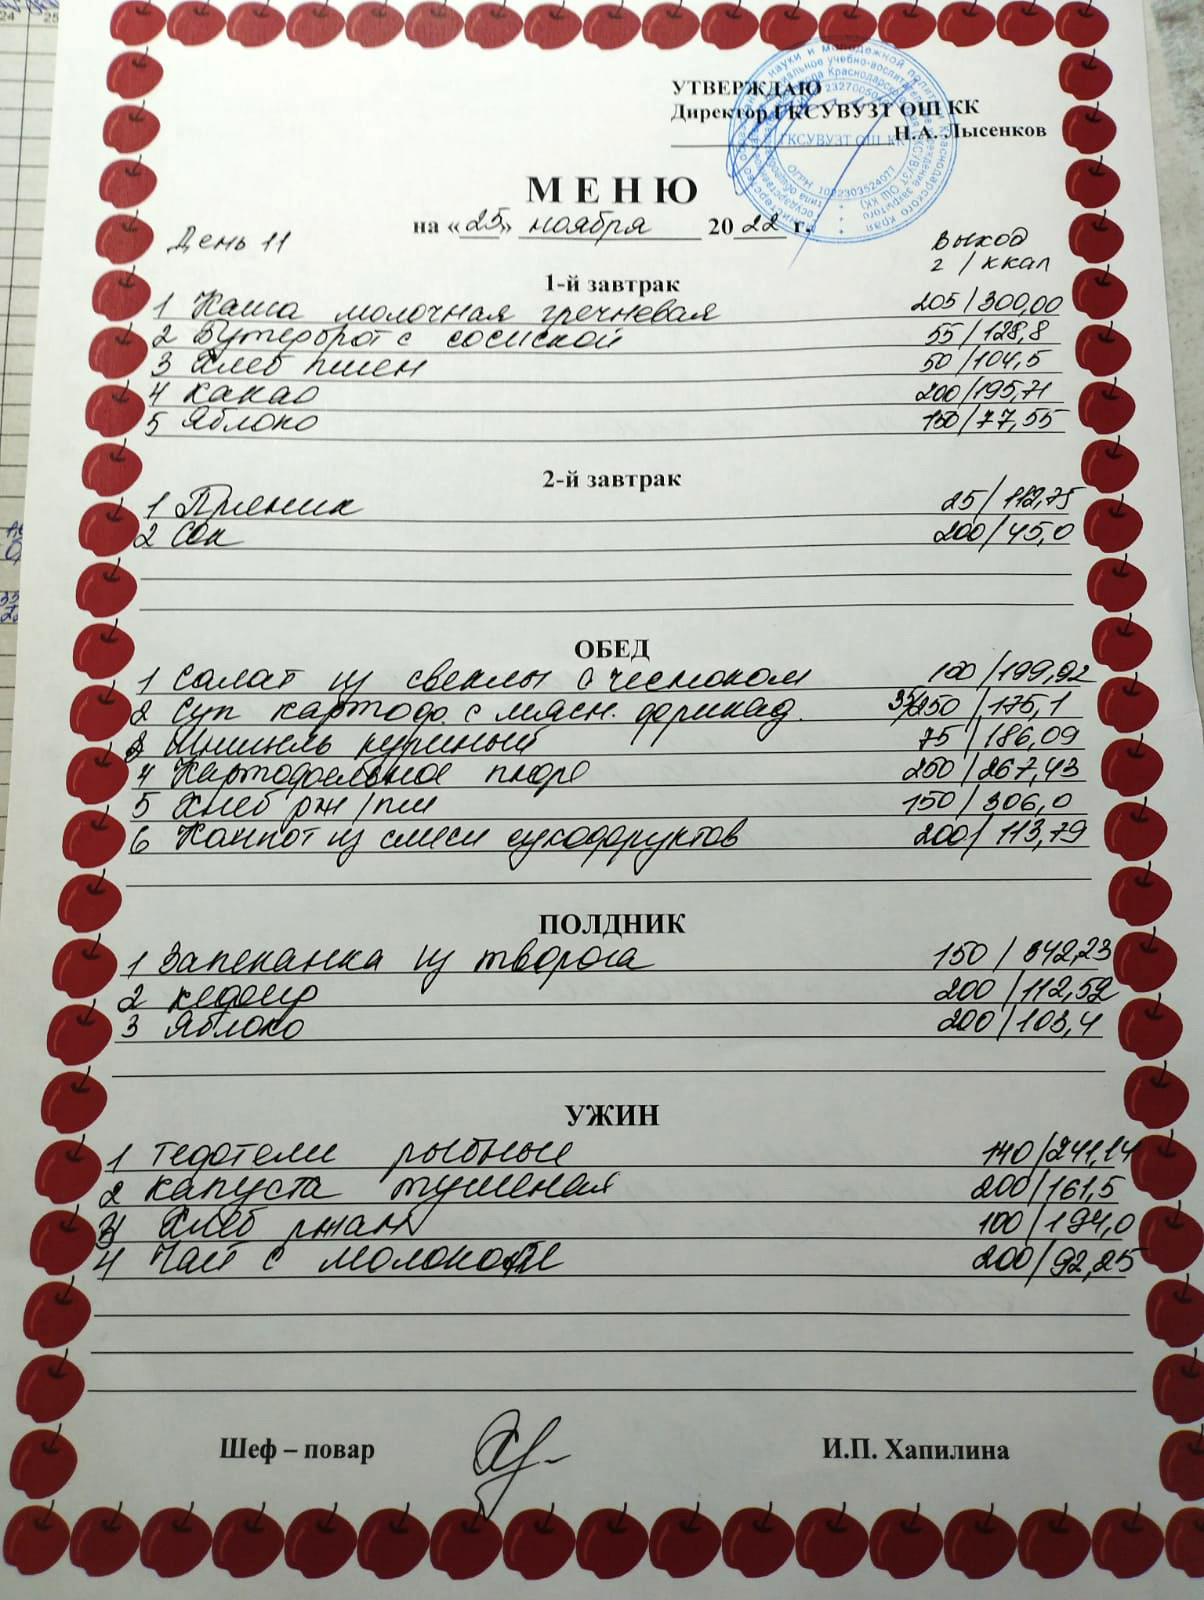 УТВЕРЖДАЮ
Директор ГКСУВУЗТ ОШ КК
Н.А. Лысенков
МЕНЮ
на «25» ноября 2022 г.
День 11
Выход
г / ккал
1-й завтрак
1 Каша молочная гречневая 205/300,00
2 Бутерброт с сосиской 55/128,8
3 Хлеб пшен 50/104,5
4 Какао 200/195,71
5 Яблоко 150/77,55
2-й завтрак
1 Пряник 25/112,75
2 Сок 200/45,0
ОБЕД
1 Салат из свеклы с чесноком 100/199,92
2 Суп картоф. с мясн. фрикад. 35/250/175,1
3 Шницель куриный 75/186,09
4 Картофельное пюре 250/267,43
5 Хлеб рж/пш 150/306,0
6 Компот из смеси сухофруктов 200/113,79
ПОЛДНИК
1 Запеканка из творога 150/342,23
2 кефир 200/112,52
3 Яблоко 200/103,4
УЖИН
1 Тефтели рыбные 140/241,14
2 капуста тушеная 200/161,5
3 Хлеб ржан 100/194,0
4 Чай с молоком 200/92,25
Шеф – повар И.П. Хапилина